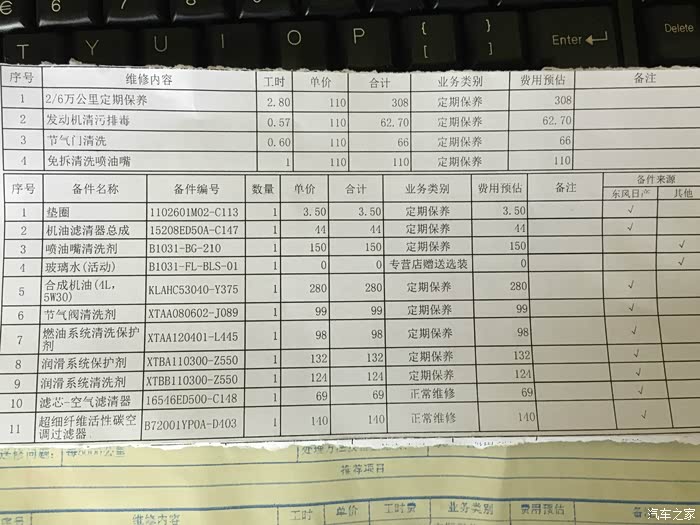 € 6 7 8 9 0
T Y U I O P { [ } ] Enter Delete
序号 维修内容 工时 单价 合计 业务类别 费用预估 备注
1 2/6万公里定期保养 2.80 110 308 定期保养 308
2 发动机清污排毒 0.57 110 62.70 定期保养 62.70
3 节气门清洗 0.60 110 66 定期保养 66
4 免拆清洗喷油嘴 1 110 110 定期保养 110
序号 备件名称 备件编号 数量 单价 合计 业务类别 费用预估 备注 备件来源
东风日产 其他
1 垫圈 1102601M02-C113 1 3.50 3.50 定期保养 3.50 √
2 机油滤清器总成 15208ED50A-C147 1 44 44 定期保养 44 √
3 喷油嘴清洗剂 B1031-BG-210 1 150 150 定期保养 150 √
4 玻璃水(活动) B1031-FL-BLS-01 1 0 0 专营店赠送选装 0 √
5 合成机油(4L, KLAHC53040-Y375 1 280 280 定期保养 280 √
5W30)
6 节气阀清洗剂 XTAA080602-J089 1 99 99 定期保养 99 √
7 燃油系统清洗保护 XTAA120401-L445 1 98 98 定期保养 98 √
剂
8 润滑系统保护剂 XTBA110300-Z550 1 132 132 定期保养 132 √
9 润滑系统清洗剂 XTBB110300-Z550 1 124 124 定期保养 124 √
10 滤芯-空气滤清器 16546ED500-C148 1 69 69 正常维修 69 √
11 超细纤维活性碳空 B72001YP0A-D403 1 140 140 正常维修 140 √
调过滤器
推荐项目
序号 维修内容 工时 单价 工时费 业务类别 费用预估 备
汽车之家